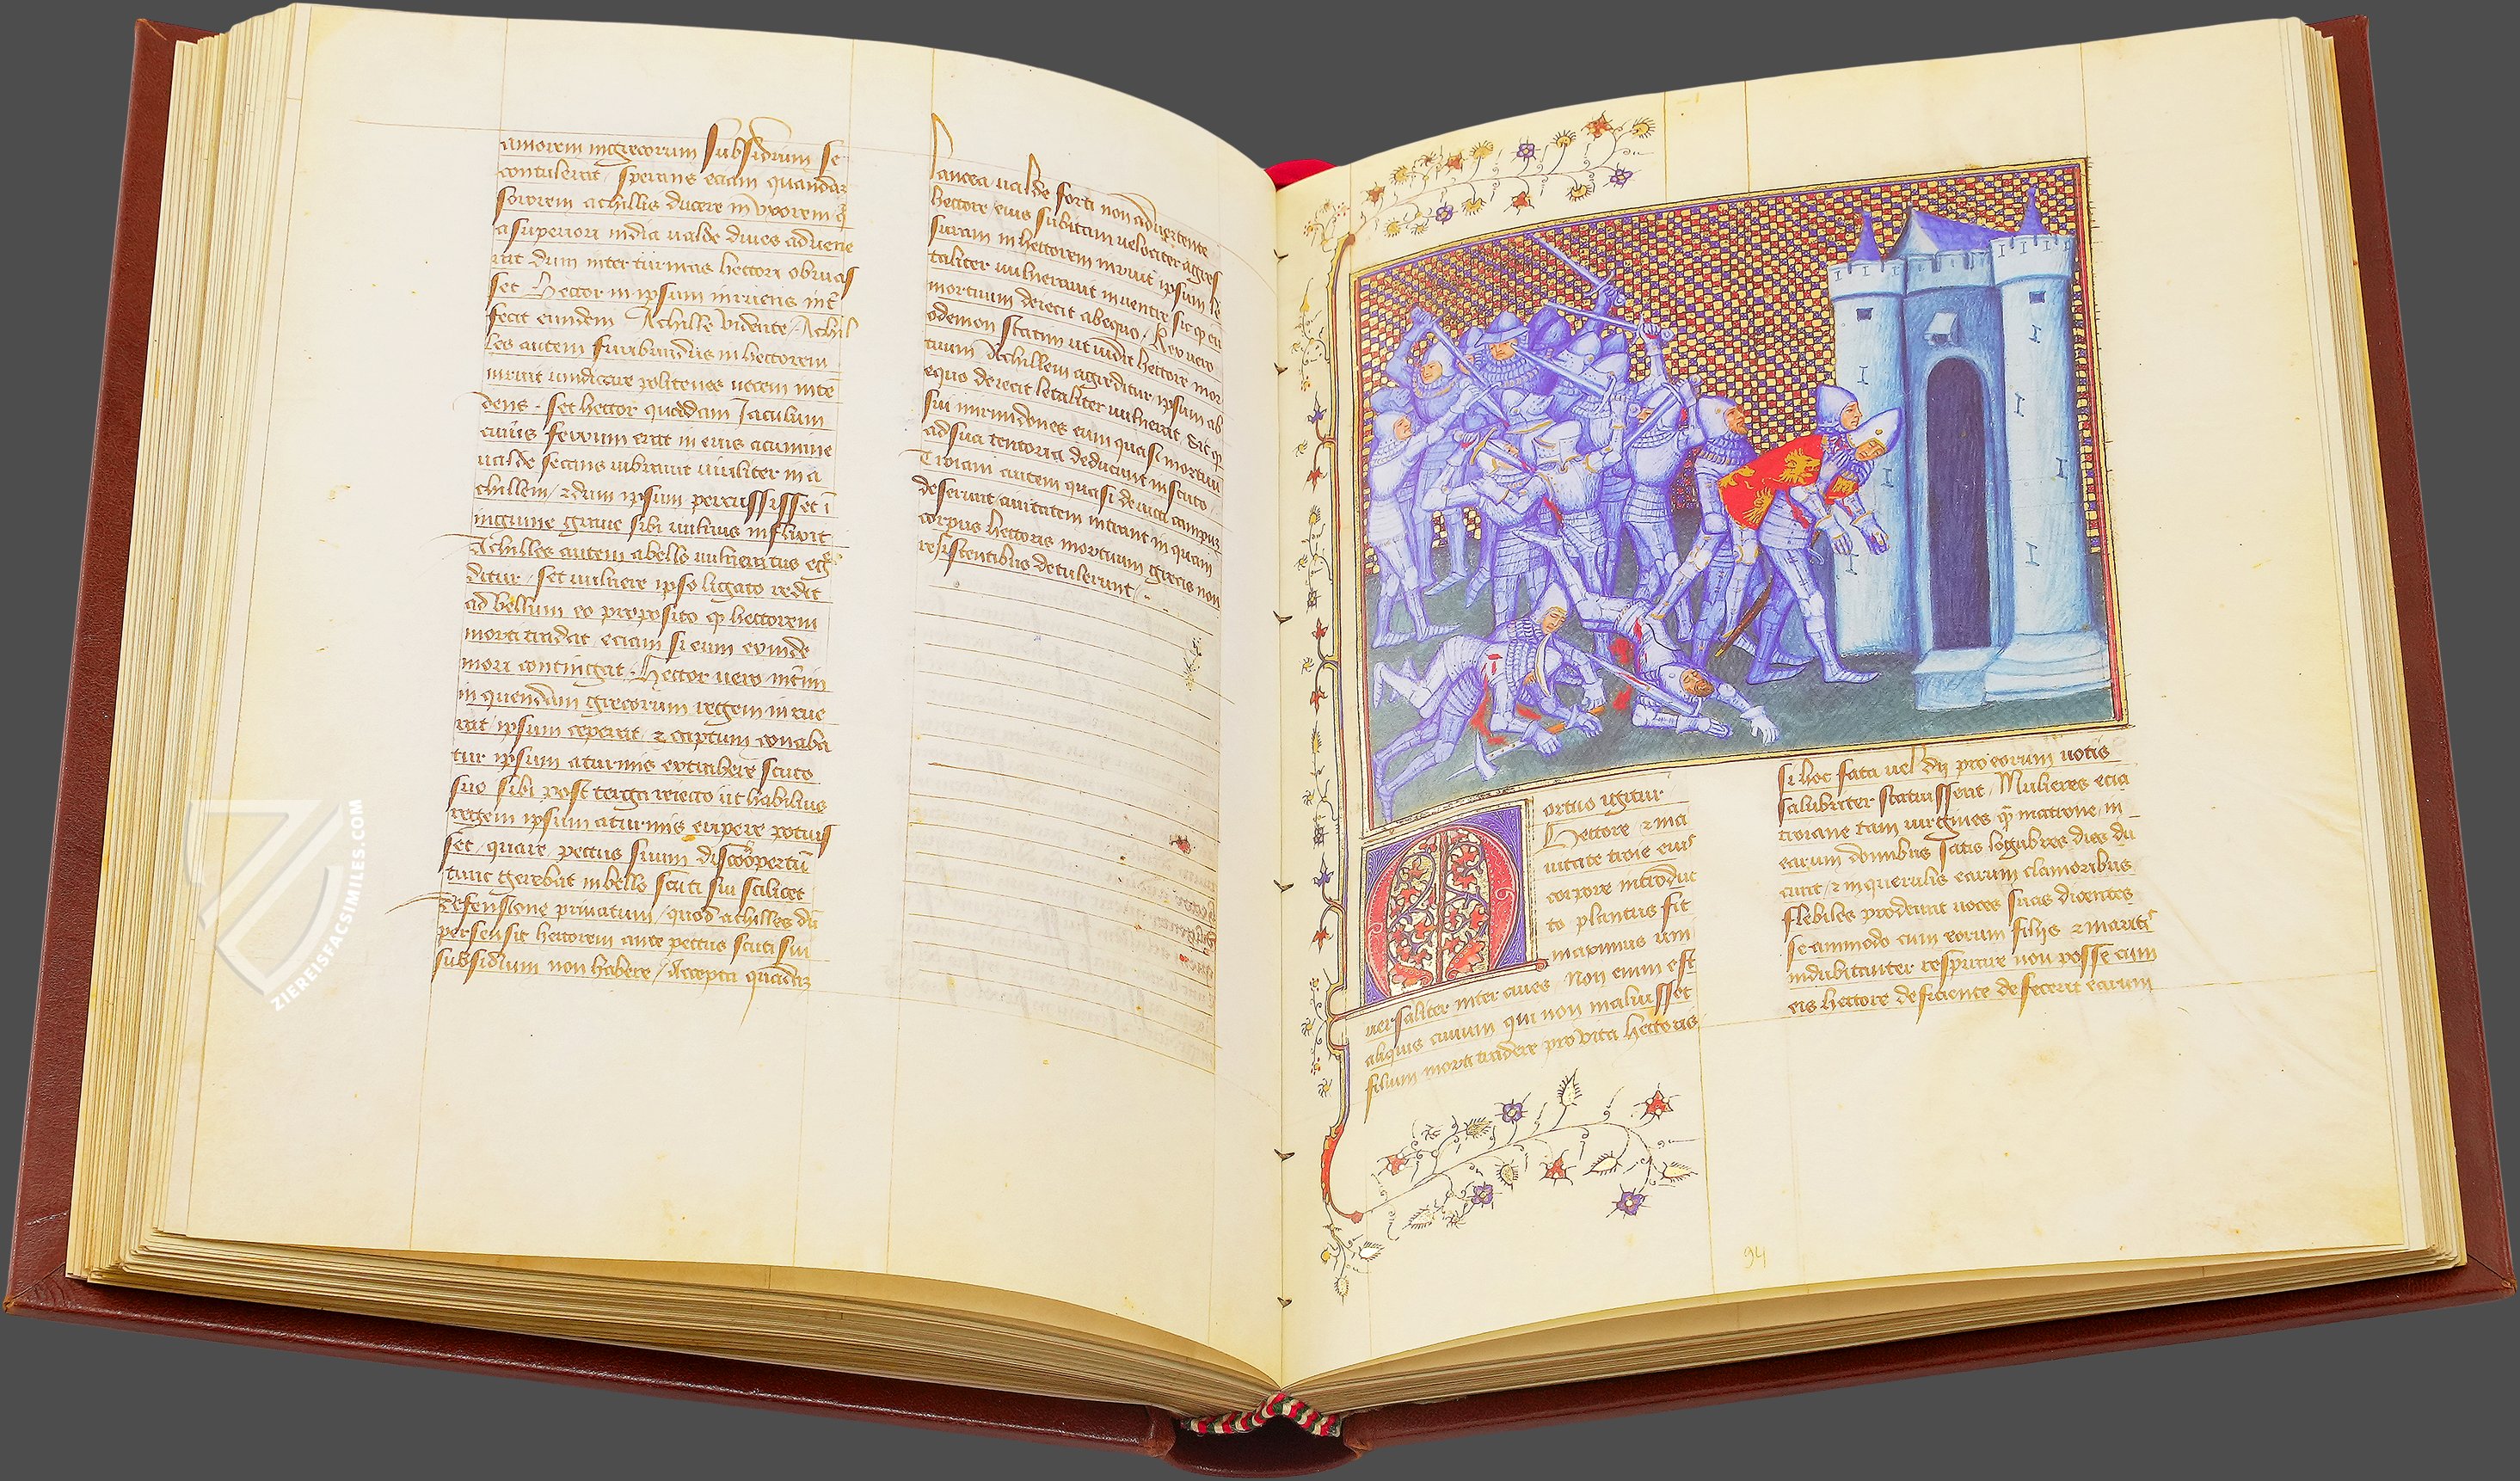 amorem in grecorum subsidium se
contulerat / sperans eciam quandam
sororem achillis ducere in vxorem q̄
a superiori india ualde diues aduene
rat dum inter turmas hectori obuias
set Hector in ipsum irruens int̄
fecit eundem Achille vidente / Achil
les autem furibundus in hectorem
irruit uindicare politenes necem inten
dens . set hector quoddam Jaculum
cuius ferrum erat in eius acumine
ualde secans vibrauit uiriliter in a
chillem / ⁊ dum ipsum percussisset ī
inguine graue sibi uulnus inflixit
Achilles autem a bello uulneratus eg̃
ditur / set uulnere ipso ligato redit
ad bellum eo proposito ꝙ hectorem
morti tradat eciam si eum exinde
mori contingat . Hector uero int̄im
in quendam grecorum regem irrue
rat / ipsum ceperat ⁊ captum conaba
tur ipsum a turmis extrahere scuto
suo sibi post terga reiecto ut habilius
regem ipsum a turmis eripere potuis
set / quare pectus suum discoopertū
tunc gerebat in bello scuti sui scilicet
defensione priuatum / quod achilles dū
persensit hectorem ante pectus scuti sui
subsidium non habere / Accepta quadam
lancea ualde forti non aduertente
hectore eius subitam velociter agres
suram in hectorem irruit ipsum le
taliter uulnerauit in uentre sic ꝙ eū
mortuum deiecit ab equo . Rex uero
odemon statim ut uidit hectore mor
tuum Achillem agreditur / ipsum ab
equo deiecit letaliter uulnerat Sic ꝙ
sui mirmidones eum quasi mortuū
ad sua tentoria deducunt in scuto .
Troiani autem quasi deuicti campum
deserunt / ciuitatem intrant in quam
corpus hectoris mortuum grecis non
resistentibus detulerunt /
Mortuo igitur
Hectore ⁊ in ci
uitate troie eius
corpore introduc
to planctus fit
maximus uni
uersaliter inter ciues . Non enim est
aliquis ciuium qui non maluisset
filium morti tradere pro vita hectoris
si hoc fata uel dij pro eorum uotis
salubriter statuissent . Mulieres ecia
troiane tam uirgines ꝙ matrone in
earum domibus Jatis logubres dies du
cunt / ⁊ in querulis earum clamoribus
flebiles prodeunt uoces suas dicentes
se ammodo cum eorum filijs ⁊ maritis
indubitanter respirare non posse cum
eis hectore deficiente defecerit earum
94
ZIEREISFACSIMILES.COM